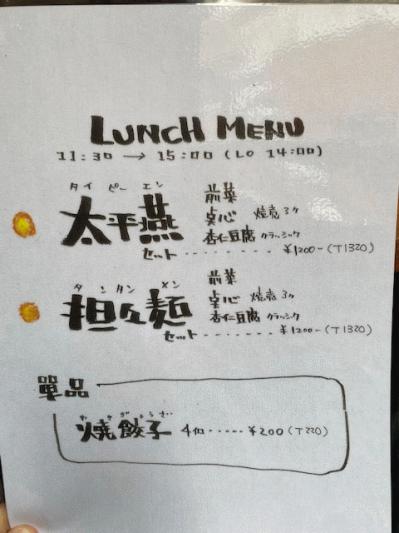 LUNCH MENU
11:30 → 15:00 (LO 14:00)
タイ ピー エン
太平燕
前菜
点心 焼売 3ケ
杏仁豆腐 クラッシック
セット ------- ¥1200-(T1320)
タン タン メン
担々麺
前菜
点心 焼売 3ケ
杏仁豆腐 クラッシック
セット ------- ¥1200-(T1320)
單品
やきぎょうざ
焼餃子 4個 ----- ¥200(T220)